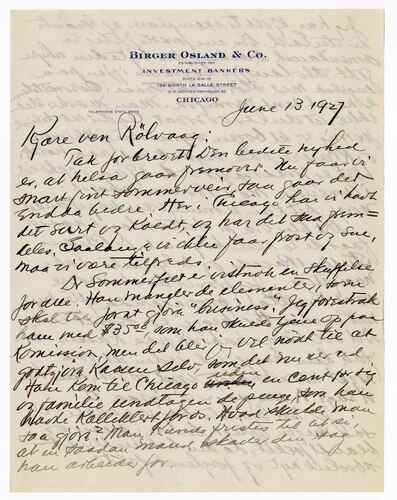 BIRGER OSLAND & CO.
ESTABLISHED 1911
INVESTMENT BANKERS
SUITE 814-15
134 NORTH LA SALLE STREET
S.W. CORNER RANDOLPH ST.
CHICAGO
TELEPHONE STATE
June 13 1927
Kjære ven Rölvaag:
Tak for brevet! Den bedste nyhed
er, at helsa gaar fremover. Nu faar vi
snart fint sommerveir, saa gaar det
endda bedre. Her i Chicago har vi havt
det surt og koldt, og har det saa frem=
deles. Saalænge vi ikke faar frost og sne,
maa vi være tilfreds.
Dr Sommerfelt er vistnok en skuffelse
for alle. Han mangler de elementer, som
skal til for at gjöre "business". Jeg forestrak
ham med $35.00, som han skulde tjene op paa
komission, men det blev vel nok til at
godtgjöre Ramen selv, som det nu er ved
Ham kom til Chicago uden en cent for sig
og familie undtagen de penge som han
havde kollektert for os. Hvad skulde man
saa gjöre? Man kunde fristes til at si,
at en saadan mand skader den sag
han arbeider for.